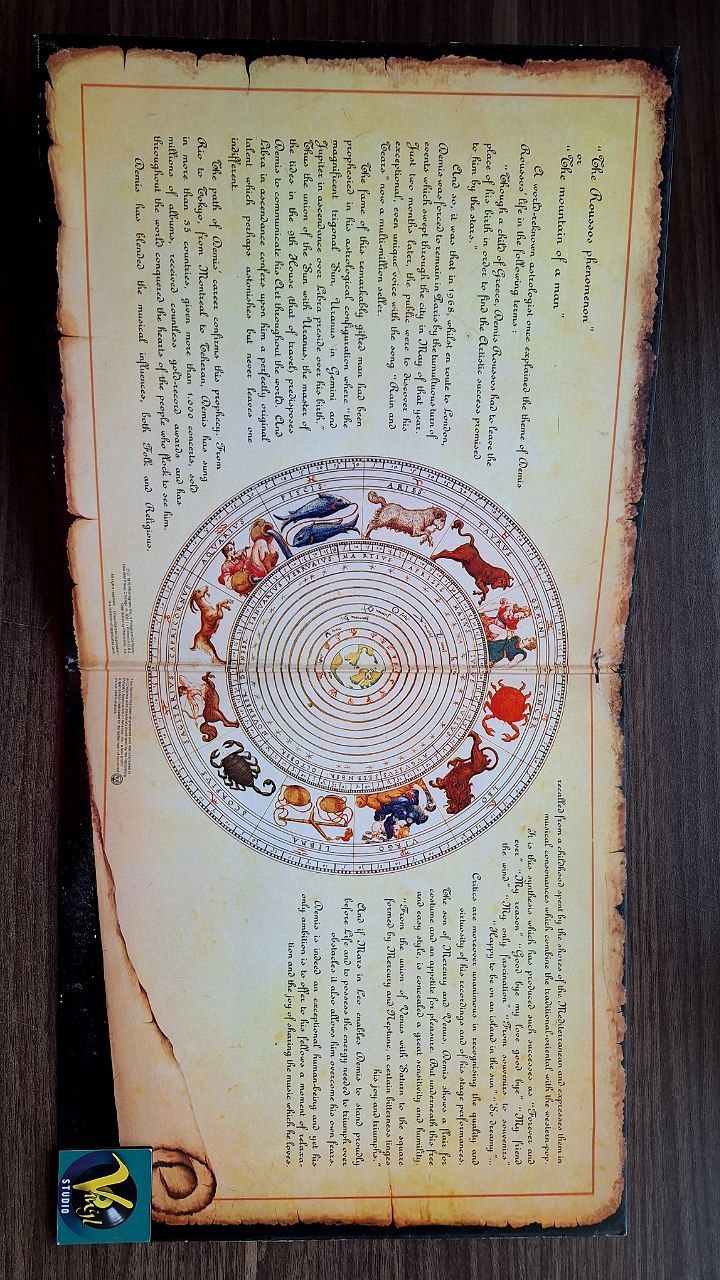 “The Roussos phenomenon”
or
“The mountain of a man”
A world-reknown astrologist once explained the theme of Demis
Roussos' life in the following terms :
“Though a child of Greece, Demis Roussos had to leave the
place of his birth in order to find the Artistic success promised
to him by the stars.”
And so, it was that in 1968, whilst en route to London,
Demis was forced to remain in Paris by the tumultuous turn of
events which swept through the city in May of that year.
Just two months later, the public were to discover his
exceptional, even unique voice with the song “Rain and
Tears” now a multi-million seller.
The fame of this remarkably gifted man had been
prophessed in his astrological configuration where “the
magnificent trigonal Sun, Uranus in Gemini and
Jupiter in ascendance over Libra preside over his birth.”
Thus the union of the Sun with Uranus, the master of
the tides in the 9th House (that of travel) predisposes
Demis to communicate his Art throughout the world. And
Libra in ascendance confers upon him a perfectly original
talent which perhaps astonishes but never leaves one
indifferent.
The path of Demis' career confirms this prophecy. From
Rio to Tokyo, from Montreal to Teheran, Demis has sung
in more than 35 countries, given more than 1.000 concerts, sold
millions of albums, received countless gold-record awards and has
throughout the world conquered the hearts of the people who flock to see him.
Demis has blended the musical influences, both Folk and Religious,
recalled from a childhood spent by the shores of the Mediterranean and expresses them in
musical consonances which combine the traditional-oriental with the western-pop.
It is this synthesis which has produced such successes as “Forever and
ever” “My reason” “Good bye my love good bye” “My friend
the wind” “My only fascination” “From souvenirs to souvenirs”
“Happy to be on an island in the sun” “So dreamy”...
Critics are moreover unanimous in recognising the quality and
virtuosity of his recordings and of his stage performances.
The son of Mercury and Venus, Demis shows a flair for
costume and an appetite for pleasure. But underneath this free
and easy style, is concealed a great sensitivity and humility.
“From the union of Venus with Saturn to the square
formed by Mercury and Neptune, a certain bitterness tinges
his joy and triumphs.”
And if Mars in Leo enables Demis to stand proudly
before Life and to possess the energy needed to triumph over
obstacles it also allows him overcome his own fears.
Demis is indeed an exceptional human-being and yet his
only ambition is to offer to his fellows a moment of relaxa-
tion and the joy of sharing the music which he loves.
PISCIS
ARIES
TAURUS
CANCER
LEO
VIRGO
LIBRA
SCORPIUS
AQUARIUS
Vinyl
STUDIO